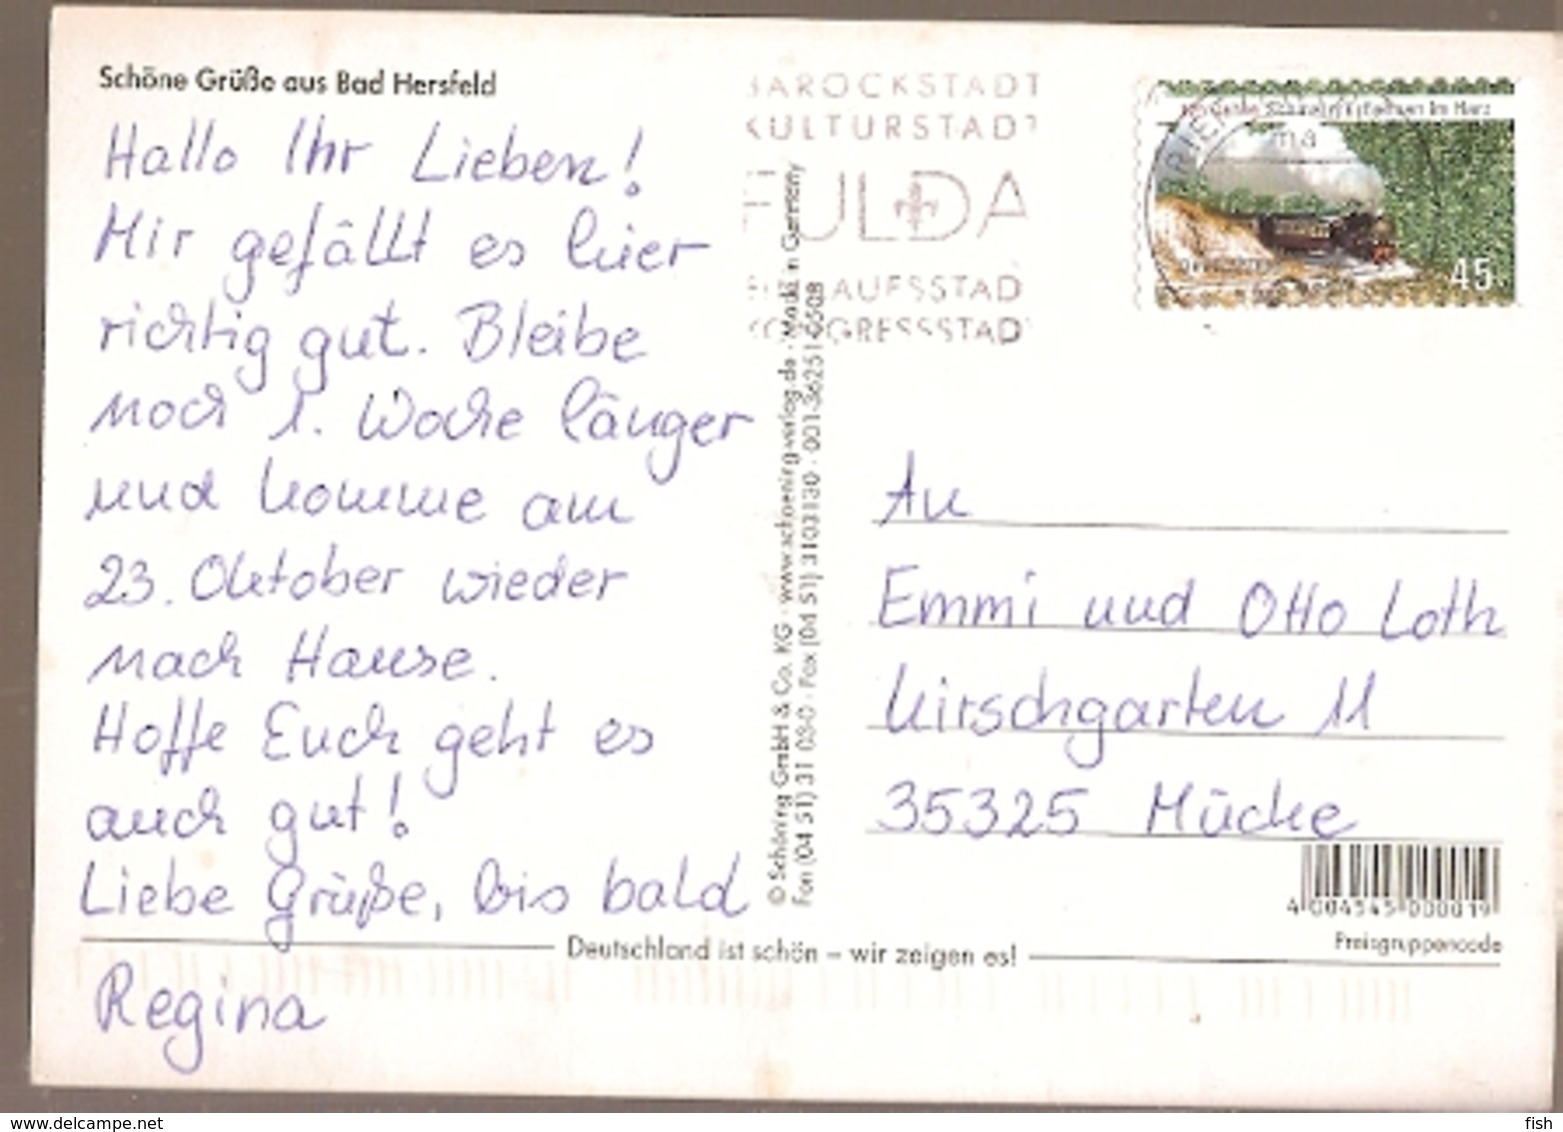 Schöne Grüße aus Bad Hersfeld
Hallo Ihr Lieben!
Mir gefällt es hier
richtig gut. Bleibe
noch 1. Woche länger
und komme am
23. Oktober wieder
nach Hause.
Hoffe Euch geht es
auch gut!
Liebe Grüße, bis bald
Regina
BAROCKSTADT
KULTURSTADT
FULDA
KONGRESSSTADT
Schmalspurbahnen im Harz
45
© Schöning GmbH & Co. KG · www.schoening-verlag.de · Made in Germany
Fon (04 51) 31 03-0 · Fax (04 51) 3103130 · 001-36251-0508
An
Emmi und Otto Loth
Kirschgarten 11
35325 Mücke
4 004545 000019
Preisgruppencode
Deutschland ist schön – wir zeigen es!
www.delcampe.net
fish